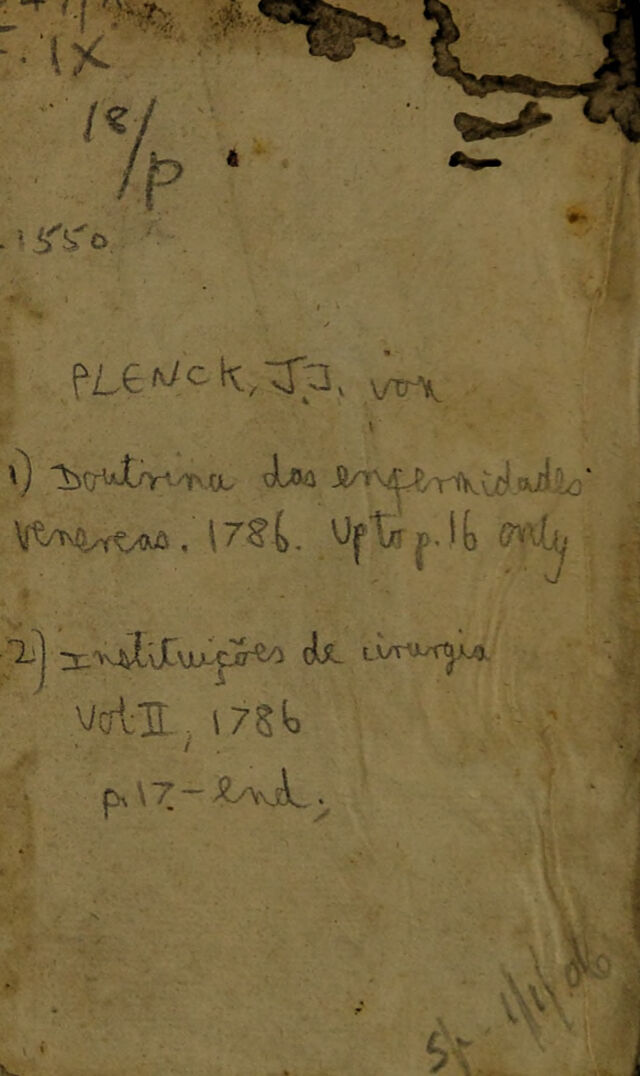 F. IX
18/p
.1550
PLENCK, J.J. von
1) Doutrina das enfermidades
venereas. 1786. Up to p. 16 only
2) Instituições de cirurgia
Vol. II, 1786
p. 17.- end.
5/-